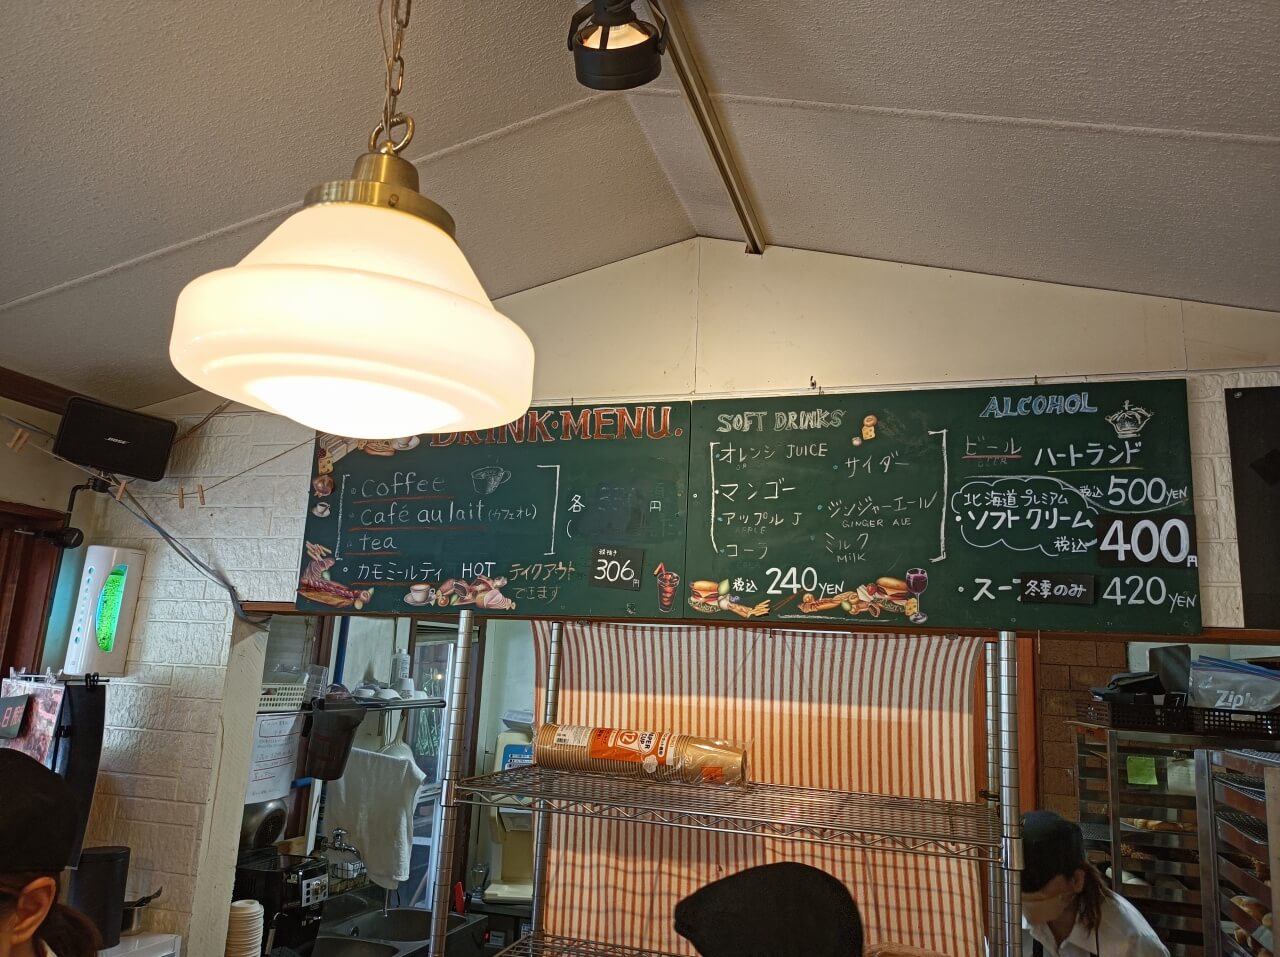 DRINK・MENU.
・coffee
・café au lait (カフェオレ)
・tea
各 円
(
・カモミールティ HOT テイクアウト
できます
税抜き
306円
SOFT DRINKS
・オレンジ JUICE
・サイダー
・マンゴー
・ジンジャーエール
GINGER ALE
・アップル J
APPLE
・ミルク
MILK
・コーラ
税込 240 YEN
ALCOHOL
ビール ハートランド
BEER
税込 500 YEN
北海道プレミアム
・ソフトクリーム
税込 400円
・スープ 冬季のみ 420 YEN
BOSE
12
Zip